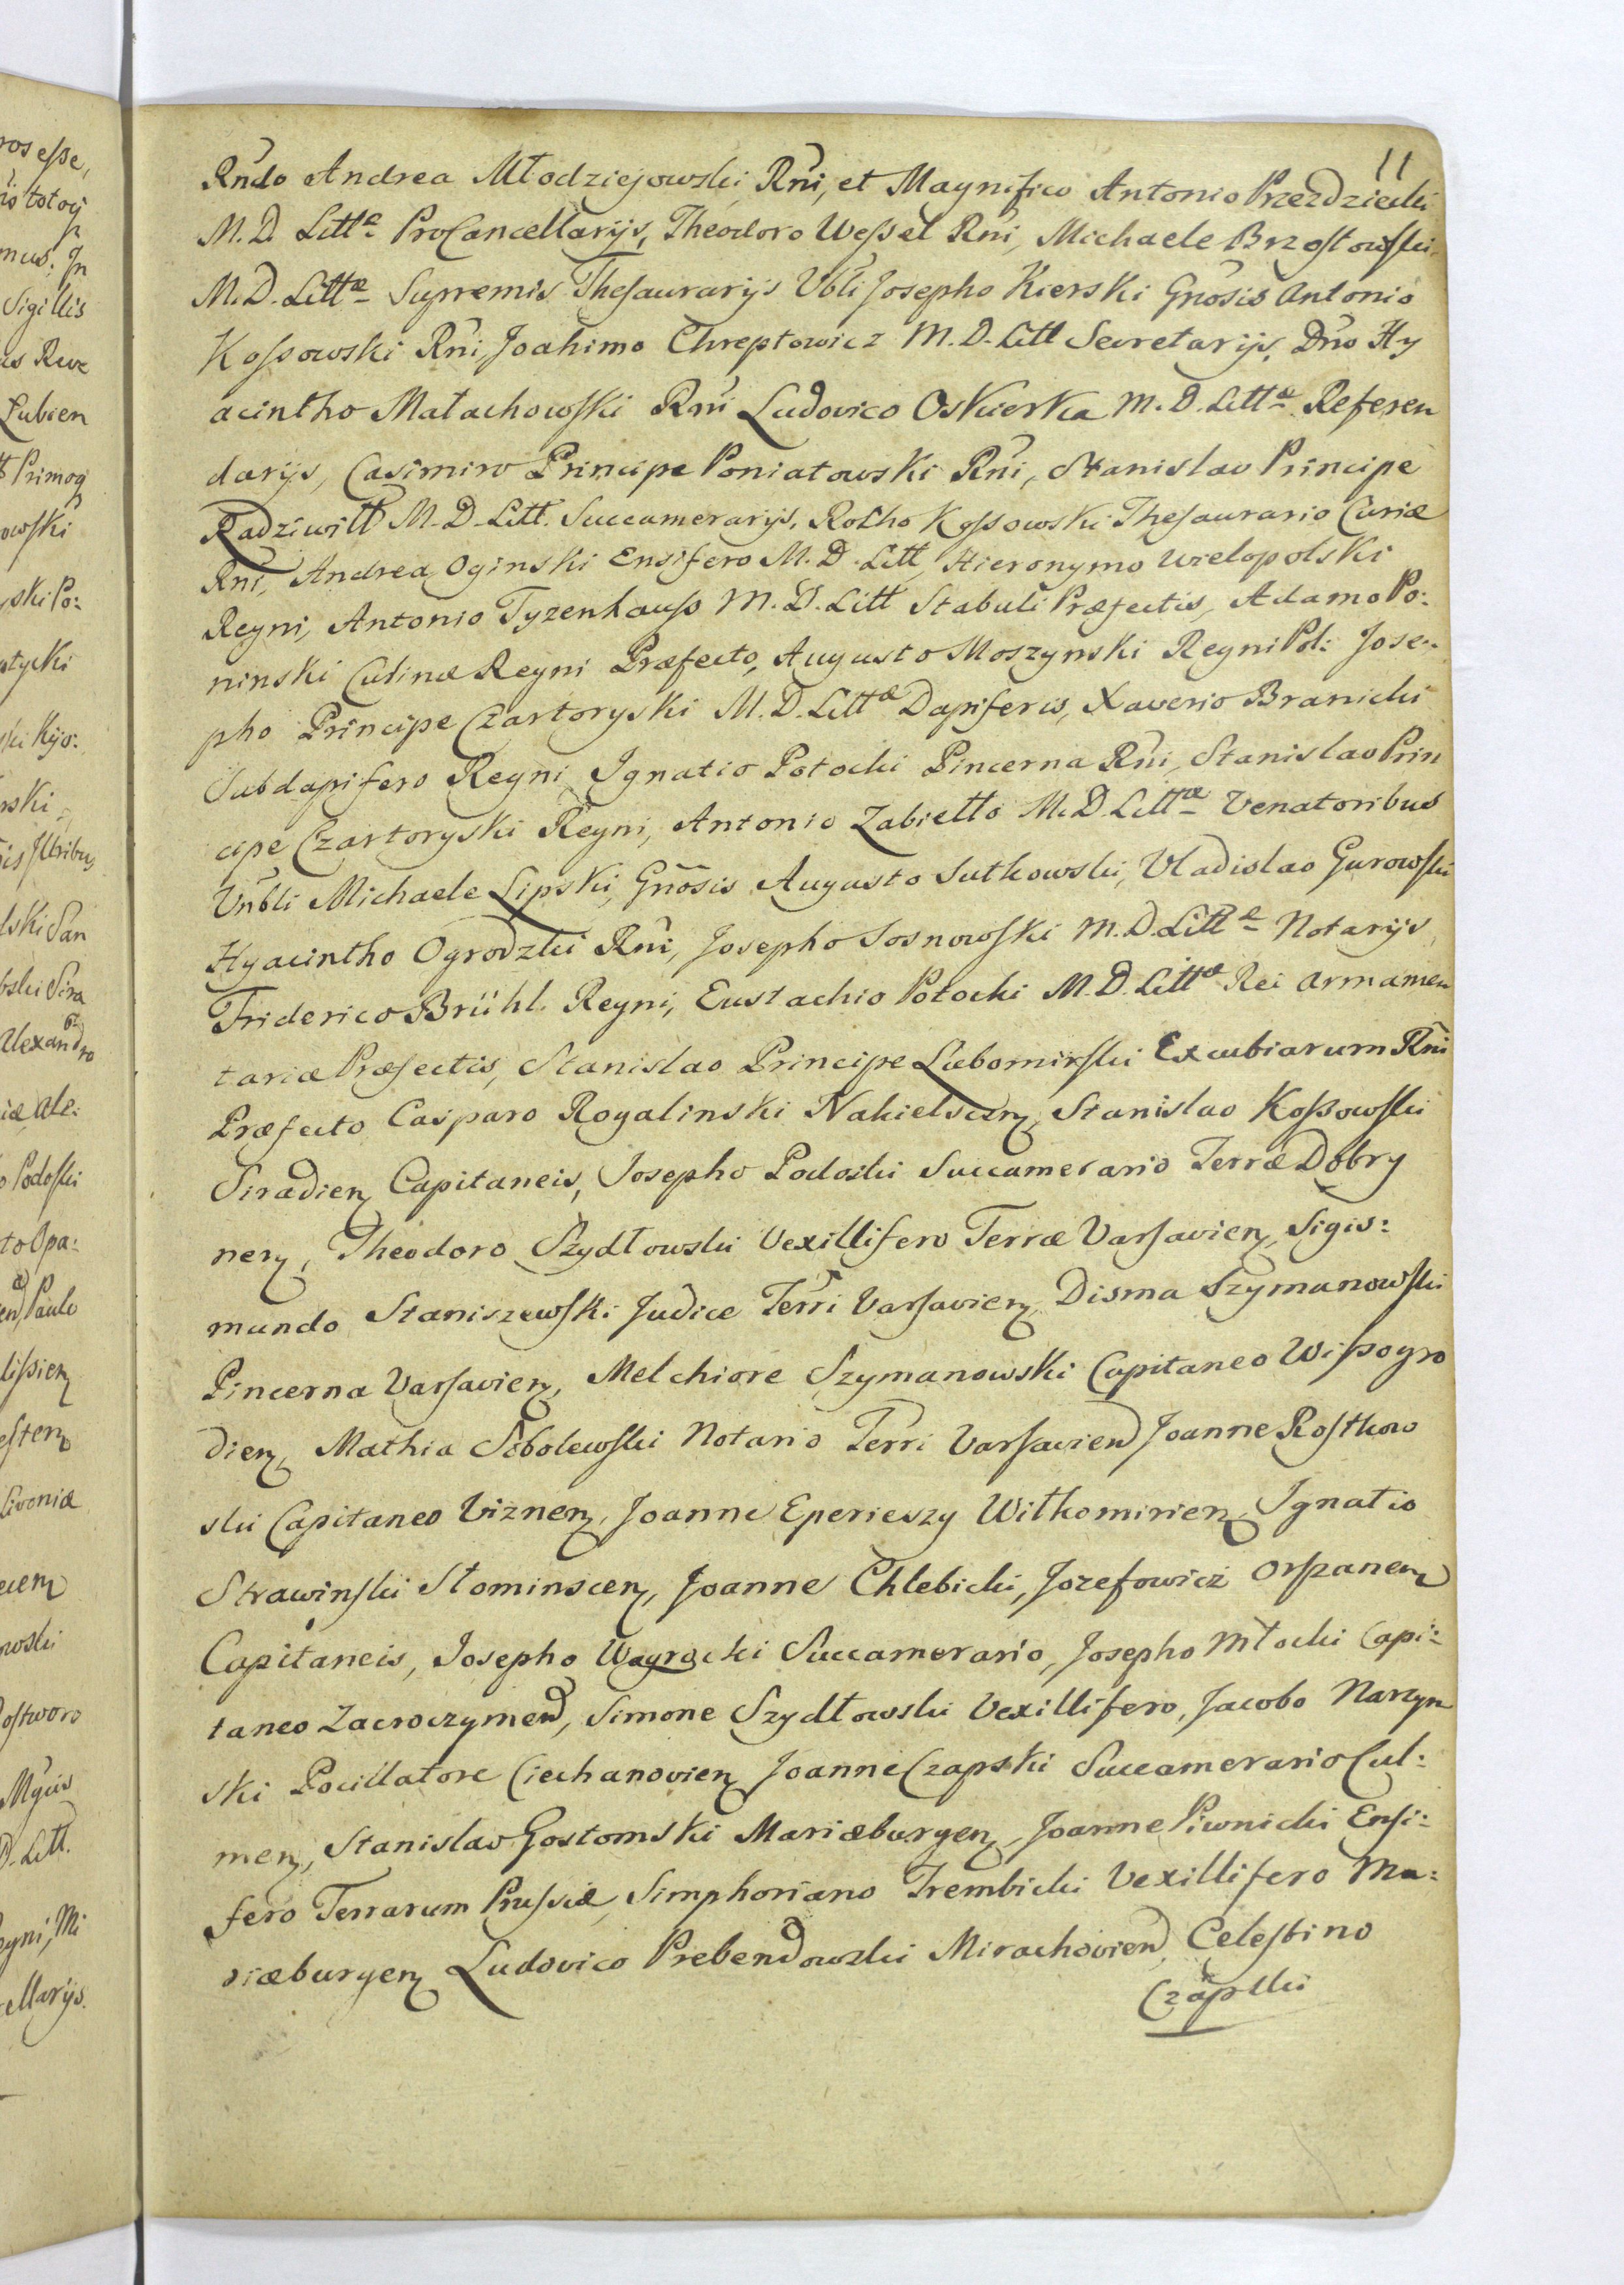 11
Rndo Andrea Młodziejowski Rni, et Magnifico Antonio Przezdziecki
M. D. Littæ ProCancellarijs, Theodoro Weſsel Rni, Michaele Brzoſtowſki
M. D. Littæ Supremis Theſaurarijs Vbli Josepho Kierski Gnosis Antonio
Koſsowski Rni, Joahimo Chreptowicz M. D. Litt Secretarijs, Dno Hy
acintho Małachowſki Rni Ludovico Oskierka M. D. Littæ Referen
darijs, Casimiro Principe Poniatowski Rni, Stanislao Principe
Radziwiłł M. D. Litt. Succamerarijs, Rocho Koſsowski Theſaurario Curiæ
Rni, Andrea Oginski Ensifero M. D. Litt, Hieronymo Wielopolski
Regni, Antonio Tyzenhauſs M. D. Litt Stabuli Præfectis, Adamo Po:
ninski Culinæ Regni Præfecto, Augusto Moszynski Regni Pol: Jose:
pho Principe Czartoryski M. D. Littæ Dapiferis, Xaverio Branicki
Subdapifero Regni Ignatio Potocki Pincerna Rni, Stanislao Prin
cipe Czartoryski Regni, Antonio Zabiełło M. D. Littæ Venatoribus
Vnbli Michaele Lipski, Gnosis Augusto Sutkowski, Vladislao Gurowſki
Hyacintho Ogrodzki Rni, Josepho Sosnowſki M. D. Littæ Notarijs
Friderico Brühl. Regni, Eustachio Potocki M. D. Littæ Rei armamen
tariæ Præfectis, Stanislao Principe Lubomirſki Excubiarum Rni
Præfecto Casparo Rogalinski Nakielscen, Stanislao Koſsowſki
Siradien Capitaneis, Josepho Podoski Succamerario Terræ Dobry
nen, Theodoro Szydłowski Vexillifero Terræ Varſavien, Sigis:
mundo Staniszewſki Judice Terri Varſavien, Disma Szymanowſki
Pincerna Varſavien, Melchiore Szymanowſki Capitaneo Wiſsogro
dien, Mathia Sobolewſki Notario Terri Varſavien Joanne Roſtkow
ski Capitaneo Viznen, Joanne Eperieszy Wiłkomirien, Ignatio
Strawinſki Słominscen, Joanne Chlebicki, Jozefowicz Orſzanen
Capitaneis, Josepho Wagrocki Succamerario, Josepho Młocki Capi:
taneo Zacroczymen, Simone Szydłowski Vexillifero, Jacobo Narzyn
ski Pocillatore Ciechanovien Joanne Czapski Succamerario Cul:
men, Stanislao Gostomski Mariæburgen, Joanne Piwnicki Enſi:
fero Terrarum Pruſsiæ, Simphoriano Trembicki Vexillifero Ma:
riæburgen Ludovico Prebendowski Mirachovien, Celeſtino
Czapſki